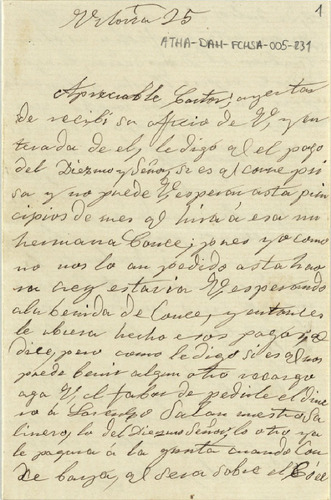 Vitoria 25
1
ATHA-DAH-FCHSA-005-231
Apreciable Castor; ayer tar
de recibi su afcio de V, y en
terada de el, le digo q el pago
del Diezmo y Señor, si es q corre pri
sa y no puede V esperar asta prin
cipios de mes q hira á esa mi
hermana Conce; pues yo como
no nos lo an pedido asta hao
ra crey estaria V esperando
a la benida de Conce, y entonces
le ubiera hecho esos pagos q
dice, pero como le digo si es q no
puede benir algun otro recargo
aga V, el fabor de pedirle el dine
ro á Lorenzo Salan nuestro Sa
linero, lo del Diezmo Señor, lo otro ya
le pagara á la gunta cuando Con
ce baya, q sera sobre el